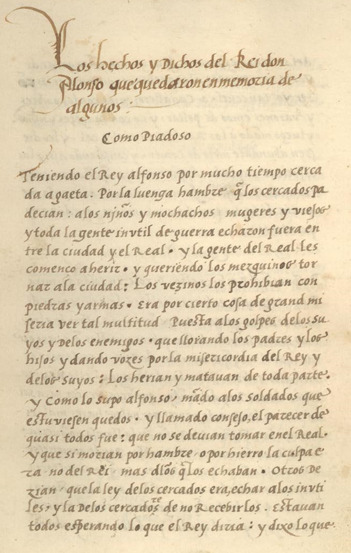 Los hechos y Dichos del Rei don
Alonso que quedaron en memoria de
algunos.
Como Piadoso
Teniendo el Rey alfonso por mucho tiempo cerca
da a gaeta. Por la luenga hambre q̃ los cercados pa
decian: a los niños y mochachos mugeres y viejos
y toda la gente invtil de guerra echaron fuera en
tre la ciudad y el Real. y la gente del Real les
comenco a herir. y queriendo los mezquinos tor
nar a la ciudad: Los vezinos los prohibian con
piedras y armas. Era por cierto cosa de grand mi
seria ver tal multitud Puesta a los golpes de los su
yos y de los enemigos. que llorando los padres y los
hijos y dando vozes por la misericordia del Rey y
de los suyos: Los herian y matauan de toda parte.
y Como lo supo alfonso, mãdo a los soldados que
estuviesen quedos. y llamado consejo, el parecer de
quasi todos fue: que no se deuian tomar en el Real.
y que si morian por hambre o por hierro la culpa e
ra no del Rei, mas dlos q̃ los echaban. Otros De
zian, que la ley de los cercados era, echar a los invti
les, y la De los cercadores de no Recebirlos. Estauan
todos esperando lo que el Rey diria: y dixo lo que